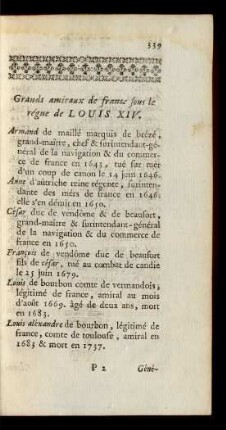 339
Grands amiraux de france sous le
régne de LOUIS XIV.
Armand de maillé marquis de brézé,
grand-maître, chef & surintendant-gé-
néral de la navigation & du commer-
ce de france en 1643, tué sur mer
d'un coup de canon le 14 juin 1646.
Anne d'autriche reine régente, surinten-
dante des mers de france en 1646.
elle s'en démit en 1650.
César duc de vendôme & de beaufort,
grand-maître & surintendant-général
de la navigation & du commerce de
france en 1650.
François de vendôme duc de beaufort
fils de césar, tué au combat de candie
le 25 juin 1679.
Louis de bourbon comte de vermandois,
légitimé de france, amiral au mois
d'août 1669. âgé de deux ans, mort
en 1683.
Louis aléxandre de bourbon, légitimé de
france, comte de toulouse, amiral en
1683 & mort en 1737.
P 2 Géné-